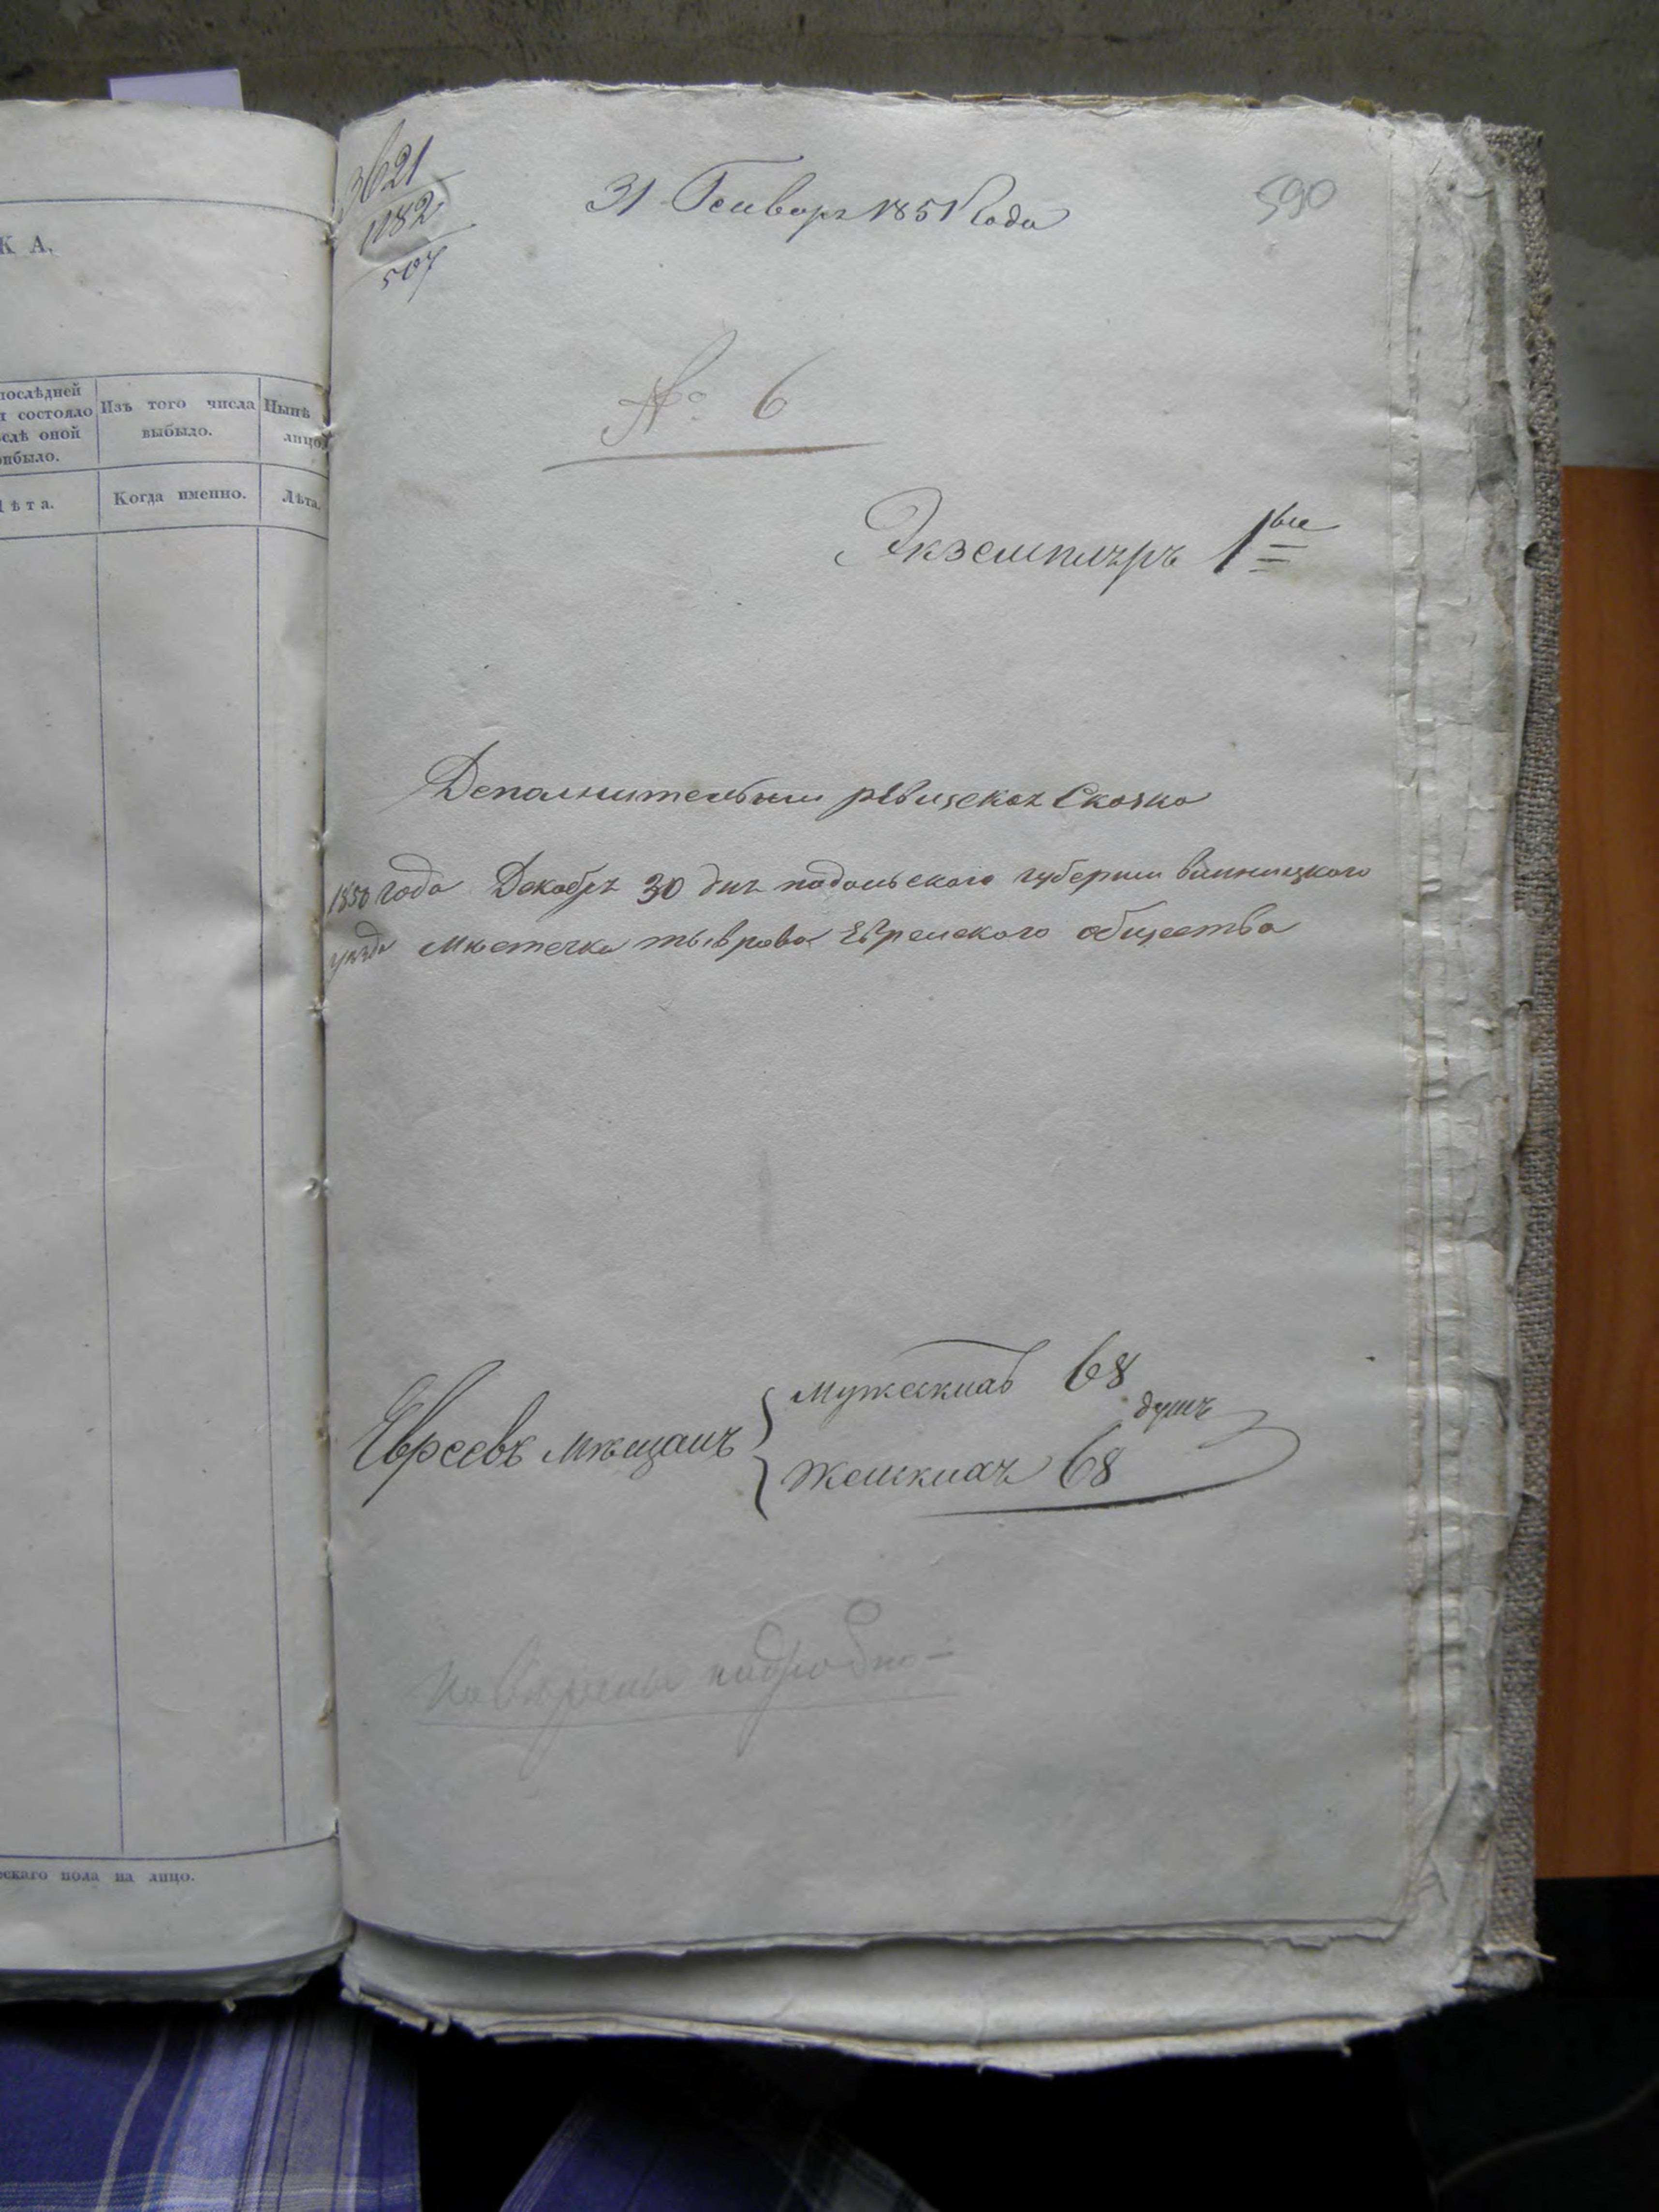 К А.
послѣдней
состояло
слѣ оной
было.
Изъ того числа
выбыло.
Нынѣ
лицо
Лѣта.
Когда именно.
Лѣта.
ескаго пола на лицо.
3621
1182
507
31 Генваря 1851 Года
590
№ 6
Экземпляръ 1ый
Дополнительная ревизская Сказка
1850 года Декабря 30 дня подольского губернии винницкого
уезда Мѣстечка тыврова Еврейского общества
Евреевъ мѣщанъ
мужскихъ 68
душъ
женскихъ 68